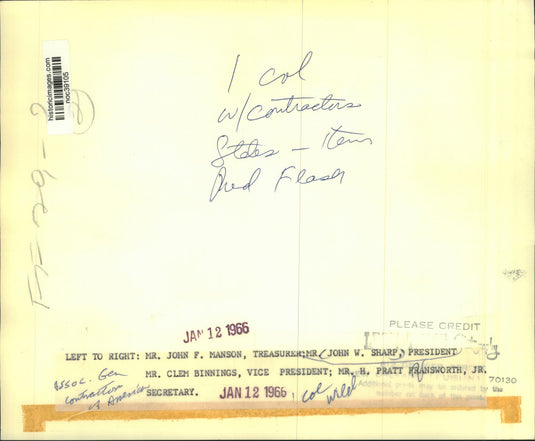 historicimages.com
noc39105
1 col
w/contractors
States - Item
Red Flash
JAN 12 1966
PLEASE CREDIT
LEFT TO RIGHT: MR. JOHN F. MANSON, TREASURER; MR. JOHN W. SHARP, PRESIDENT
MR. CLEM BINNINGS, VICE PRESIDENT; MR. H. PRATT FRANSWORTH, JR.
70130
SECRETARY. JAN 12 1966
1 col
Assoc. Gen
Contractors
of America
Additional prints may be ordered by the
number on back of this print.